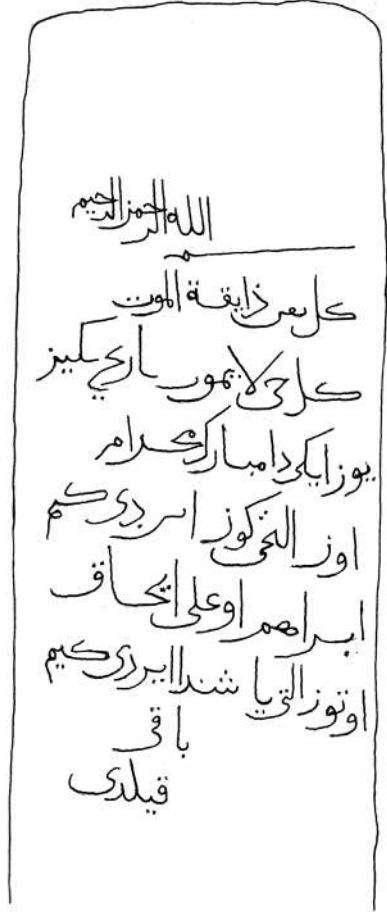 بسم الله الرحمن الرحيم
كل نفس ذايقة الموت
كل حى لا يموت تاريخ سكيز
يوز ايكى دا مبارك محرام
كوز ايردى كم
ابراهم اوغلى اسحاق
اوتوز التى ياشندا ايردى كيم
باقى
قيلدى